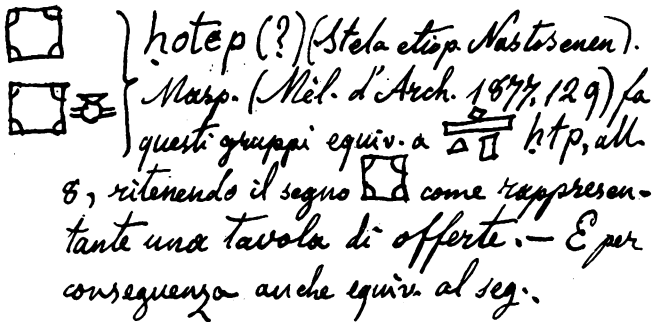 ḥotep (?) (Stela etiop. Nastosenen).
Masp. (Mél. d'Arch. 1877, 129) fa
questi gruppi equiv. a ḥtp, all.
8, ritenendo il segno come rappresen-
tante una tavola di offerte. — E per
conseguenza anche equiv. al seg.